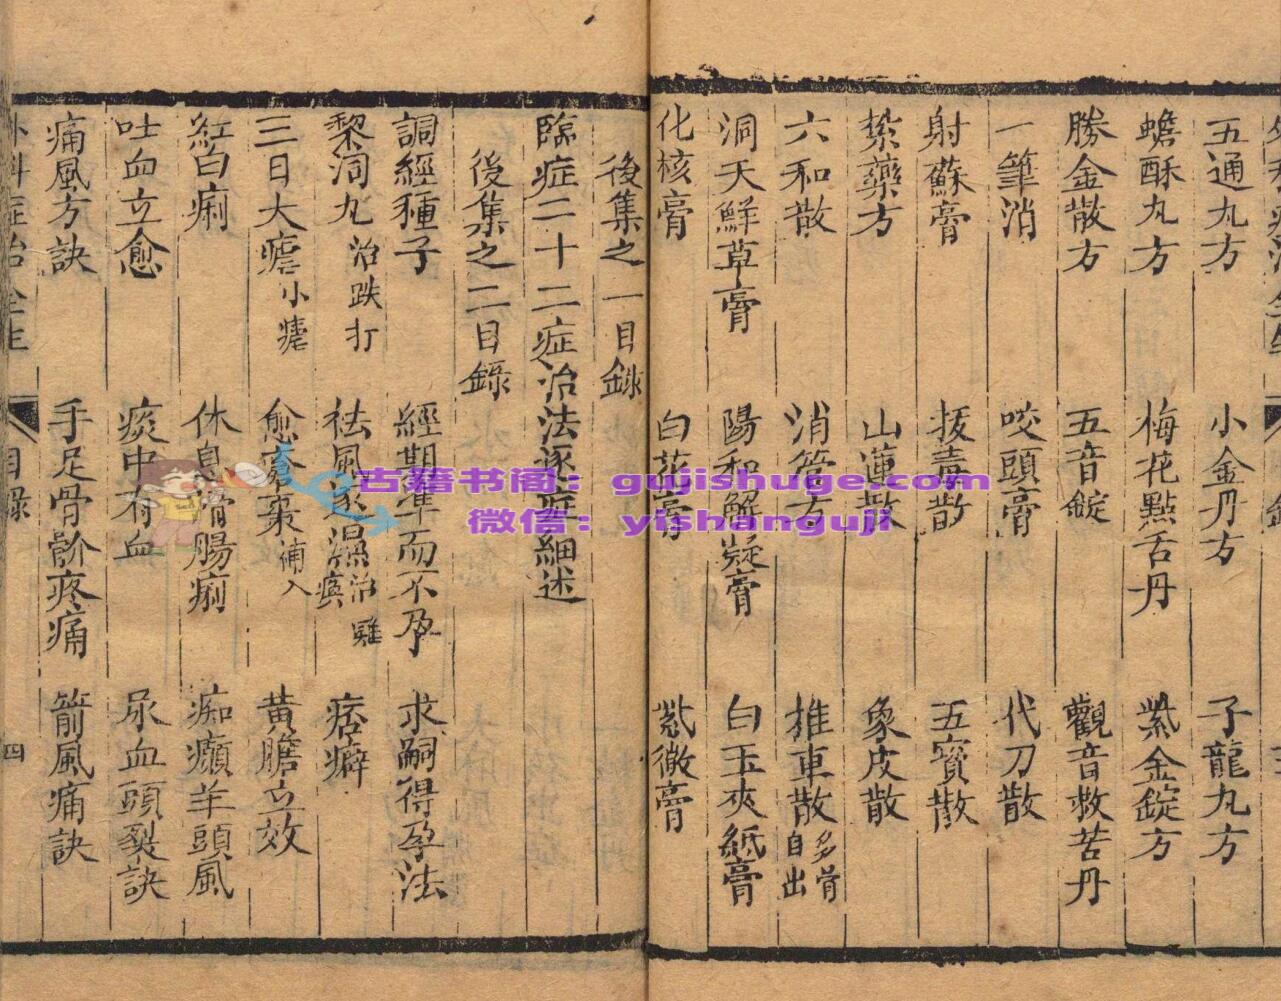 五通丸方　小金丹方　子龍丸方
蟾酥丸方　梅花點舌丹　紫金錠方
勝金散方　五音錠　觀音救苦丹
一筆消　咬頭膏　代刀散
射蘇膏　拔毒散　五寶散
紮藥方　山蓮散　象皮散
六和散　消管方　推車散多骨自出
洞天鮮草膏　陽和解凝膏　白玉夾紙膏
化核膏　白花膏　紫微膏
後集之一目錄
臨症二十二症治法逐症細述
後集之二目錄
調經種子　經期準而不孕　求嗣得孕法
黎洞丸治跌打　祛風逐濕治雞　痞癖
三日大瘧小瘧　愈瘡棗補入　黃膽立效
紅白痢　休息滑腸痢　痴癲羊頭風
吐血立愈　痰中有血　尿血頭裂訣
痛風方訣　手足骨骱疼痛　箭風痛訣
外科症治全生　目錄　四
古籍书阁：gujishuge.com
微信：yishanguji